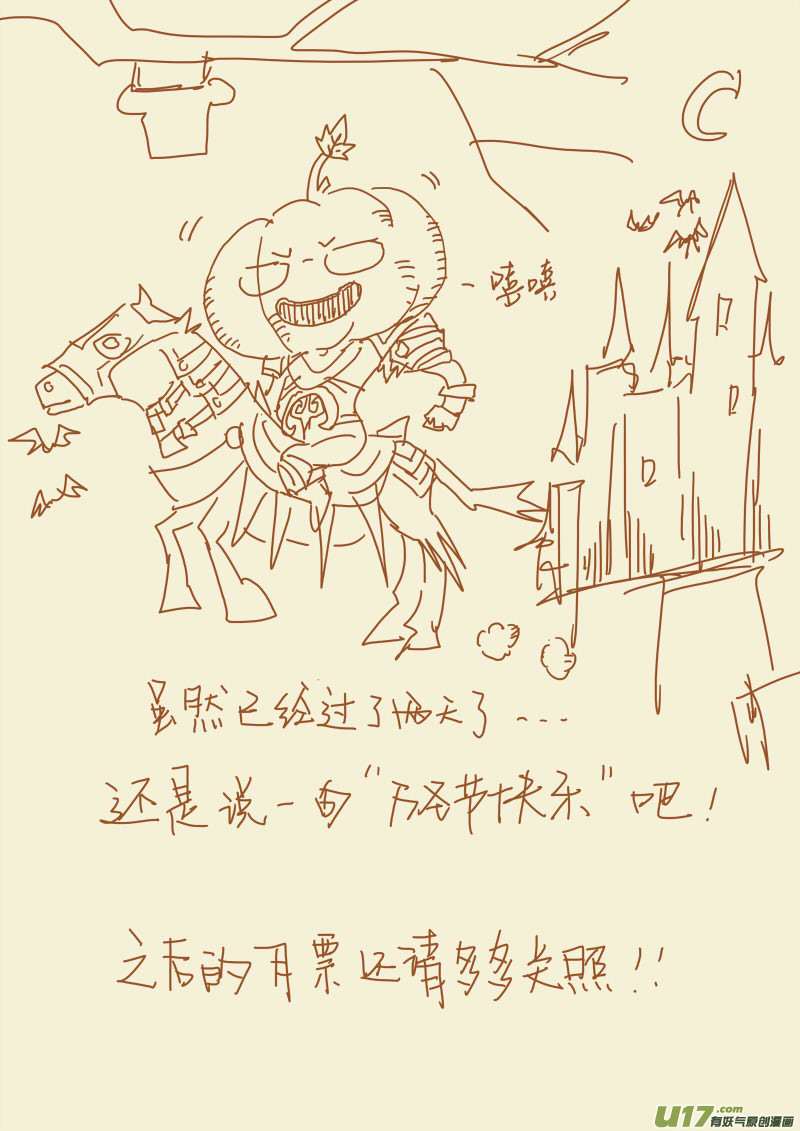 嘻嘻
虽然已经过了两天了...
还是说一句“万圣节快乐”吧！
之后的月票还请多多关照！！
U17.com
有妖气原创漫画